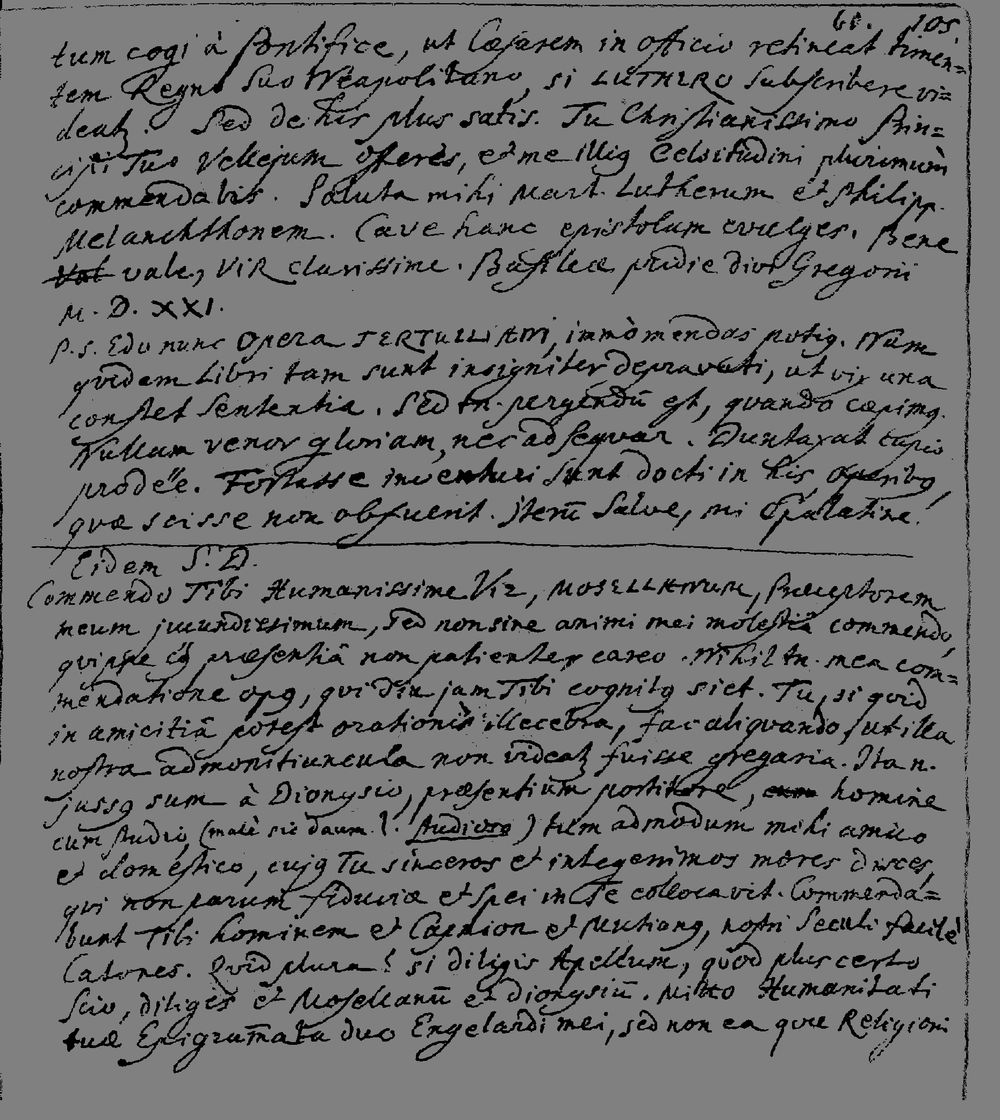 61. 105.
tum cogi à Pontifice, ut Cæsarem in officio retineat timen=
tem Regno suo Neapolitano, si LUTHERO subscribere vi=
deatꝫ. Sed de his plus satis. Tu Christianissimo Prin=
cipi Tuo Vellejum offeres, et me illiꝯ Celsitudini plurimum
commendabis. Saluta mihi Mart. Lutherum et Philipp.
Melanchthonem. Cave hanc epistolam evulges. Bene
Val vale, VIR clarissime. Basileæ pridie divi Gregorii
M. D. XXI.
P.S. Edo nunc Opera TERTULLIANI, immò mendas potiꝯ. Nam
quidem Libri tam sunt insigniter depravati, ut vix una
constet sententia. Sed tn. pergendū est, quando cœpimꝯ.
Nullam venor gloriam, nec adsequar. Duntaxat cupio
prodeē. Fortasse inventuri sunt docti in his operibꝯ,
quæ scisse non obfuerit. Iterū Salve, mi Spalatine!
Eidem S. D.
Commendo Tibi Humanissime Vir, MOSELLANUM, Præceptorem
meum jucundissimum, sed non sine animi mei molestiâ commendo,
quippe cꝯ præsentiâ non patienter careo. Nihil tn. mea com=
mendatione opꝯ, qui diu jam Tibi cognitꝯ siet. Tu, si quid
in amicitiâ potest orationis illecebra, fac aliquando, ut illa
nostra admonitiuncula non videatꝫ fuisse gregaria. Ita n.
jussꝯ sum à Dionysio, præsentium portitore, cum homine
cum studio (malè sic daum. l. studioso) tum admodum mihi amico
et domestico, cujꝯ Tu sinceros et integerrimos mores disces,
qui non parum fiduciæ et spei in Te collocavit. Commenda=
bunt Tibi hominem et Capnion et Mutianꝯ, nostri Seculi facilè
Catones. Quid plura? si diligis Apellum, quod plus certo
scio, diliges et Mosellanū et Dionysiū. Mitto Humanitati
tuæ Epigram̄ata duo Engelandi mei, sed non ea quæ Religioni